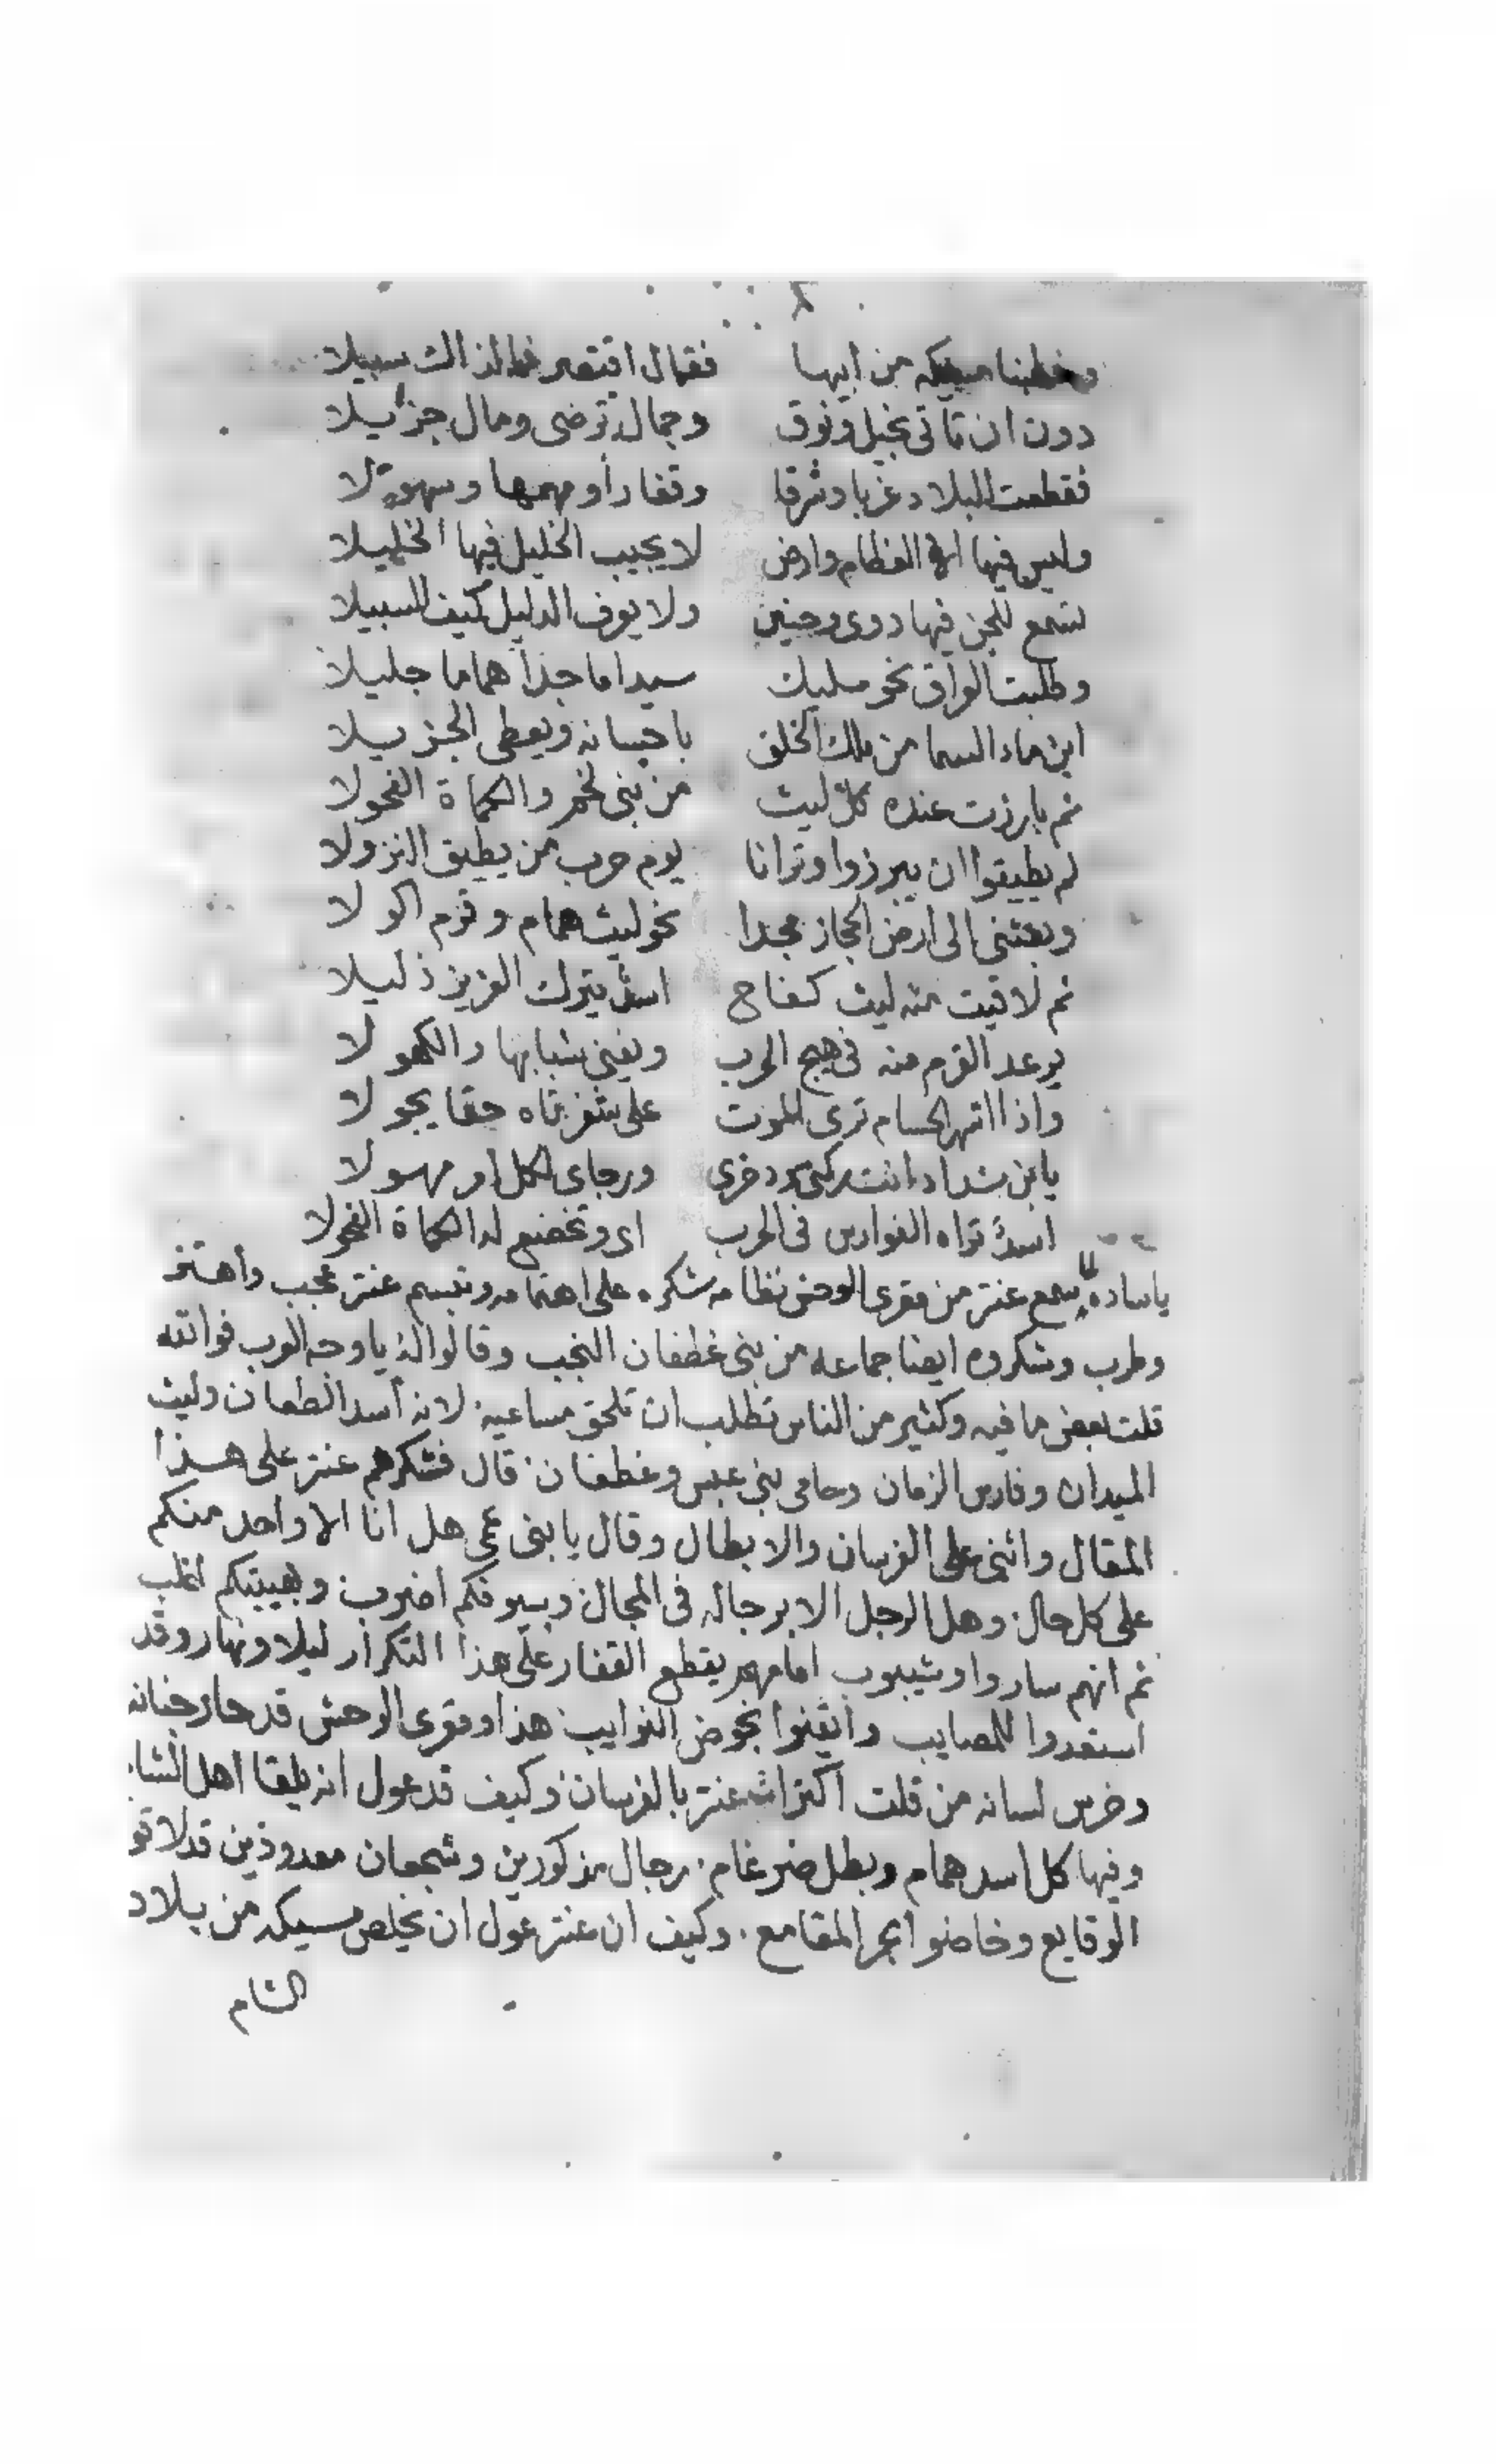 وخطبنا مسيكه من ابيها    فقال اقتصر فما لذالك سبيلا
دون ان تاتى بخيل ونوق    وجمال ترضى ومال جزيلا
فقطعت البلاد غربا وشرقا    وقفارأ ومهمها وسهولا
وليس فيها العظام وارض    لا يجيب الخليل فيها الخليلا
تسمع للجن فيها دوى وحنين    ولا يعرف الدليل كيف السبيلا
وطلبت العراق نحو مليك    سيدا ماجدا هماما جليلا
ابن ماء السما من ملك الخلق    باحسانه ويعطى الجزيلا
ثم بارزت عنده كل ليث    من بنى لخم والكماة الفحولا
لم يطيقوا ان يبرزوا وترانا    يوم حرب من يطيق النزولا
وبعثنى الى ارض الحجاز مجدا    نحو ليث همام وقرم اكولا
ثم لاقيت منه ليث كفاح    اسد يترك العزيز ذليلا
يرعد القرم منه فى هيج الحرب    ويفنى شبابها والكهولا
واذا اشهر الحسام ترى الموت    على شفرتاه حقا يجولا
يا بن شداد انت ركنى وذخرى    ورجاى لكل امر مهولا
اسد تراه الفوارس فى الحرب    اى وتخضع له الكماة الفحولا
يا ساده سمع عنتر من مقرى الوحش نظامه شكره على اهتمامه وتبسم عنتر عجب وأهتز
وطرب وشكروه ايضا جماعه من بنى غطفان النجب وقالوا له يا وجه العرب فوالله
قلت بعض ما فيه وكثير من الناس تطلب ان تلحق مساعيه لانه أسد الطعان وليث
الميدان وفارس الزمان وحامى بنى عبس وغطفان قال فشكرهم عنتر على هذا
المقال واثنى على الفرسان والابطال وقال يا بنى عمى هل انا الا واحد منكم
على كل حال وهل الرجل الا برجاله فى المجال وبسيوفكم اضرب وبهيبتكم اغلب
ثم انهم ساروا وشيبوب امامهم يقطع القفار على هذا التكرار ليلا ونهار وقد
استعدوا للمصايب وايقنوا بخوض النوايب هذا ومقرى الوحش قد حار جنانه
وخرس لسانه من قلت اكتراث عنتر بالفرسان وكيف قد عول انه يلقا اهل الشام
وفيها كل اسد همام وبطل ضرغام رجال مذكورين وشجعان معدودين قد لاقو
الوقايع وخاضوا بحر المقامع وكيف ان عنتر عول ان يخلص مسيكه من بلاد
الشام